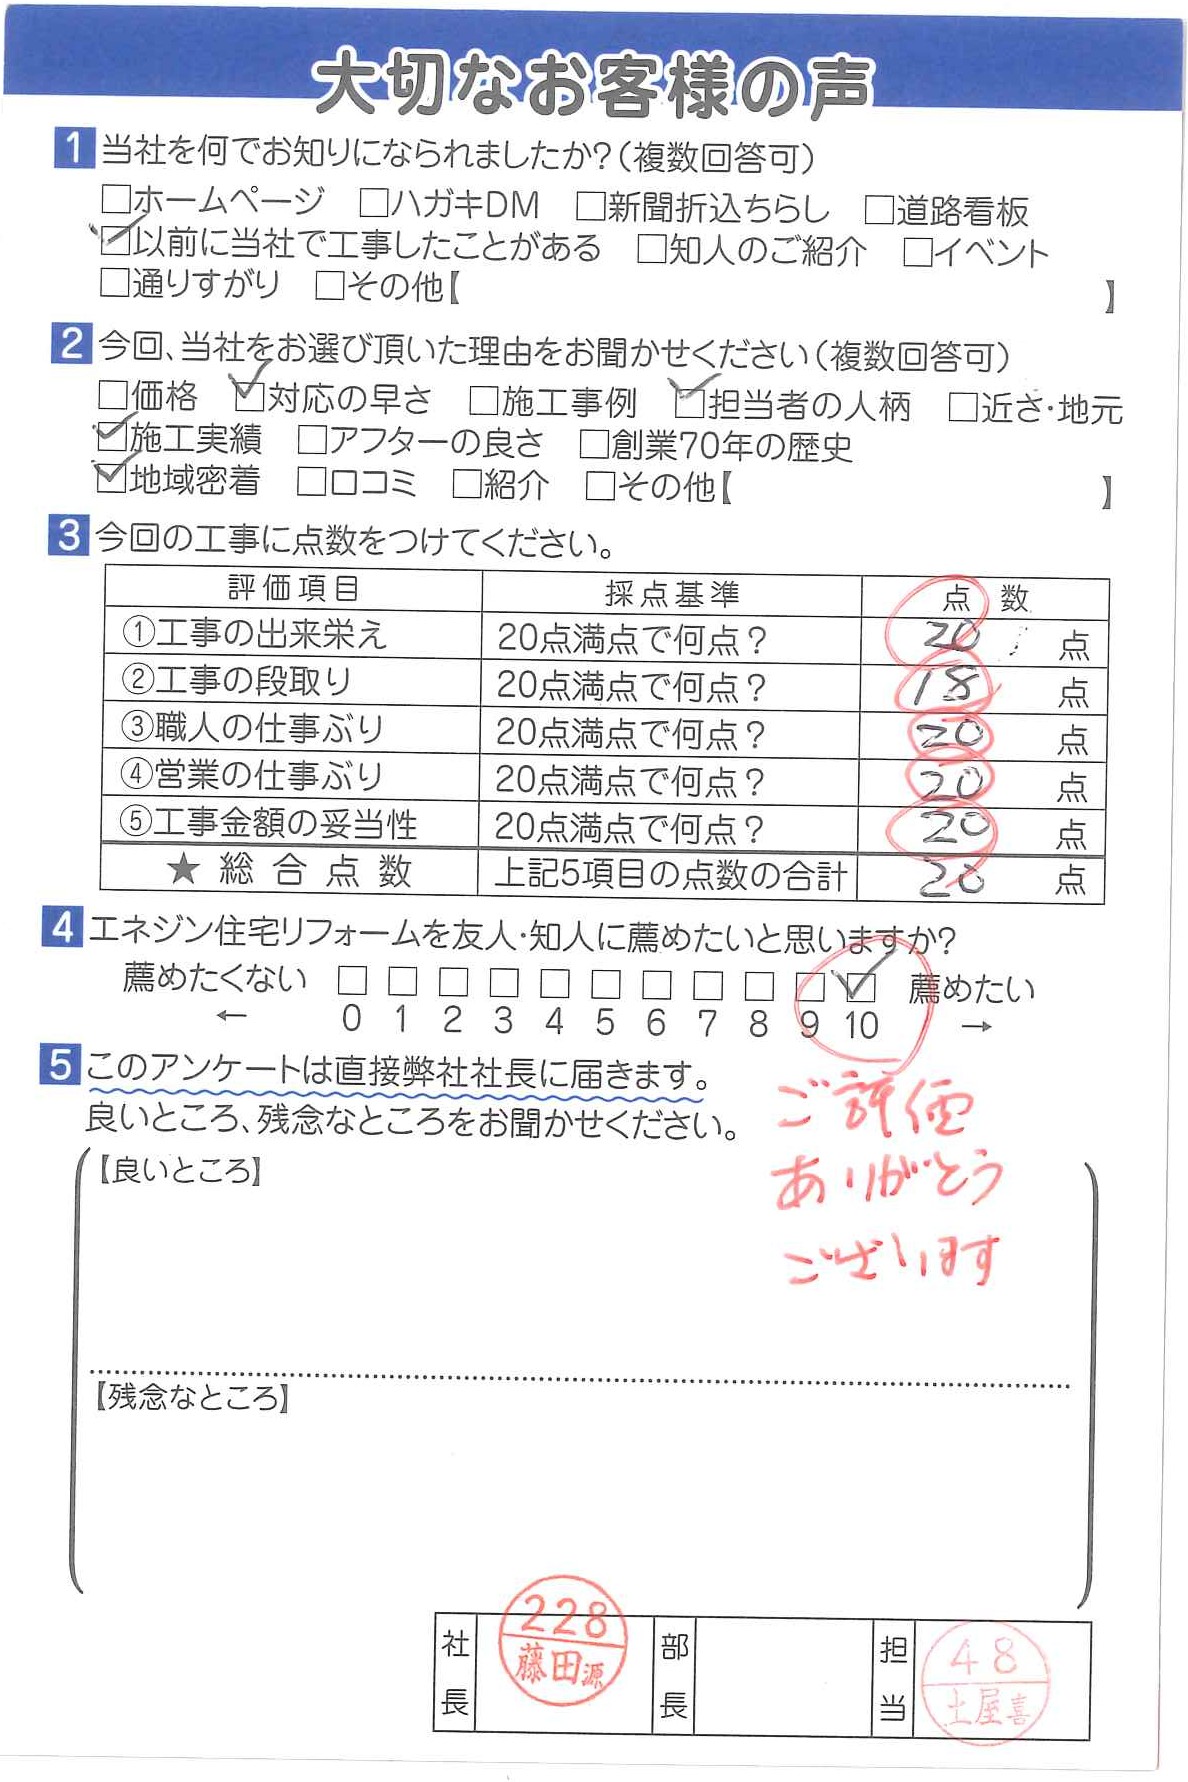 大切なお客様の声
1 当社を何でお知りになられましたか?(複数回答可)
□ホームページ □ハガキDM □新聞折込ちらし □道路看板
☑以前に当社で工事したことがある □知人のご紹介 □イベント
□通りすがり □その他【 】
2 今回、当社をお選び頂いた理由をお聞かせください(複数回答可)
□価格 ☑対応の早さ □施工事例 ☑担当者の人柄 □近さ・地元
☑施工実績 □アフターの良さ □創業70年の歴史
☑地域密着 □口コミ □紹介 □その他【 】
3 今回の工事に点数をつけてください。
評価項目 採点基準 点 数
①工事の出来栄え 20点満点で何点? 20 点
②工事の段取り 20点満点で何点? 18 点
③職人の仕事ぶり 20点満点で何点? 20 点
④営業の仕事ぶり 20点満点で何点? 20 点
⑤工事金額の妥当性 20点満点で何点? 20 点
★総合点数 上記5項目の点数の合計 20 点
4 エネジン住宅リフォームを友人・知人に薦めたいと思いますか?
薦めたくない □ □ □ □ □ □ □ □ □ □ ☑ 薦めたい
← 0 1 2 3 4 5 6 7 8 9 10 →
5 このアンケートは直接弊社社長に届きます。
良いところ、残念なところをお聞かせください。
ご評価
ありがとう
ございます
【良いところ】
【残念なところ】
社長 228 藤田源 部長 担当 48 土屋喜